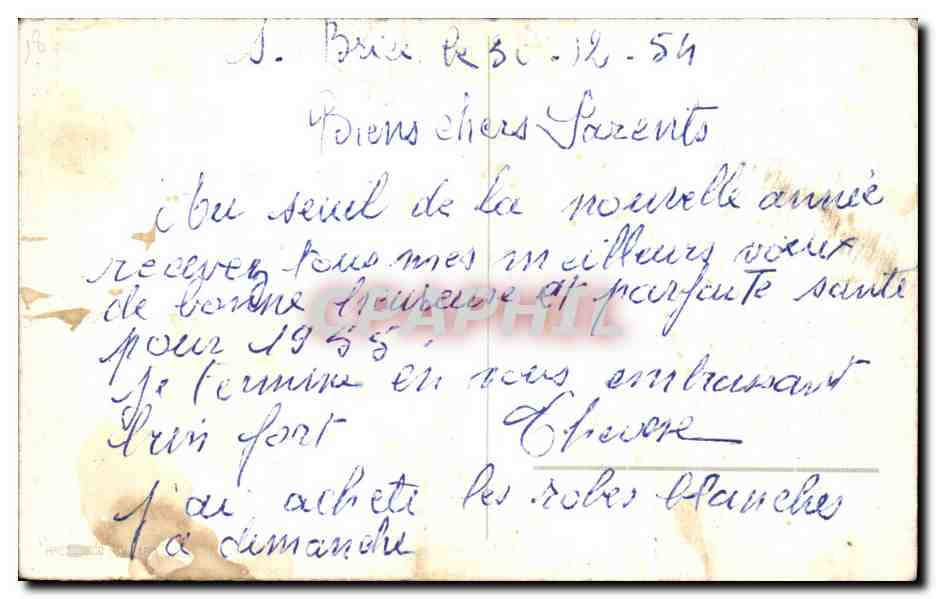 S. Brice le 31-12-54
Biens chers Parents
Au seuil de la nouvelle année
recevez tous mes meilleurs voeux
de bonne heureuse et parfaite santé
pour 1955.
Je termine en vous embrassant
bien fort
J'ai acheté les robes blanches
a dimanche
CPAPHIL